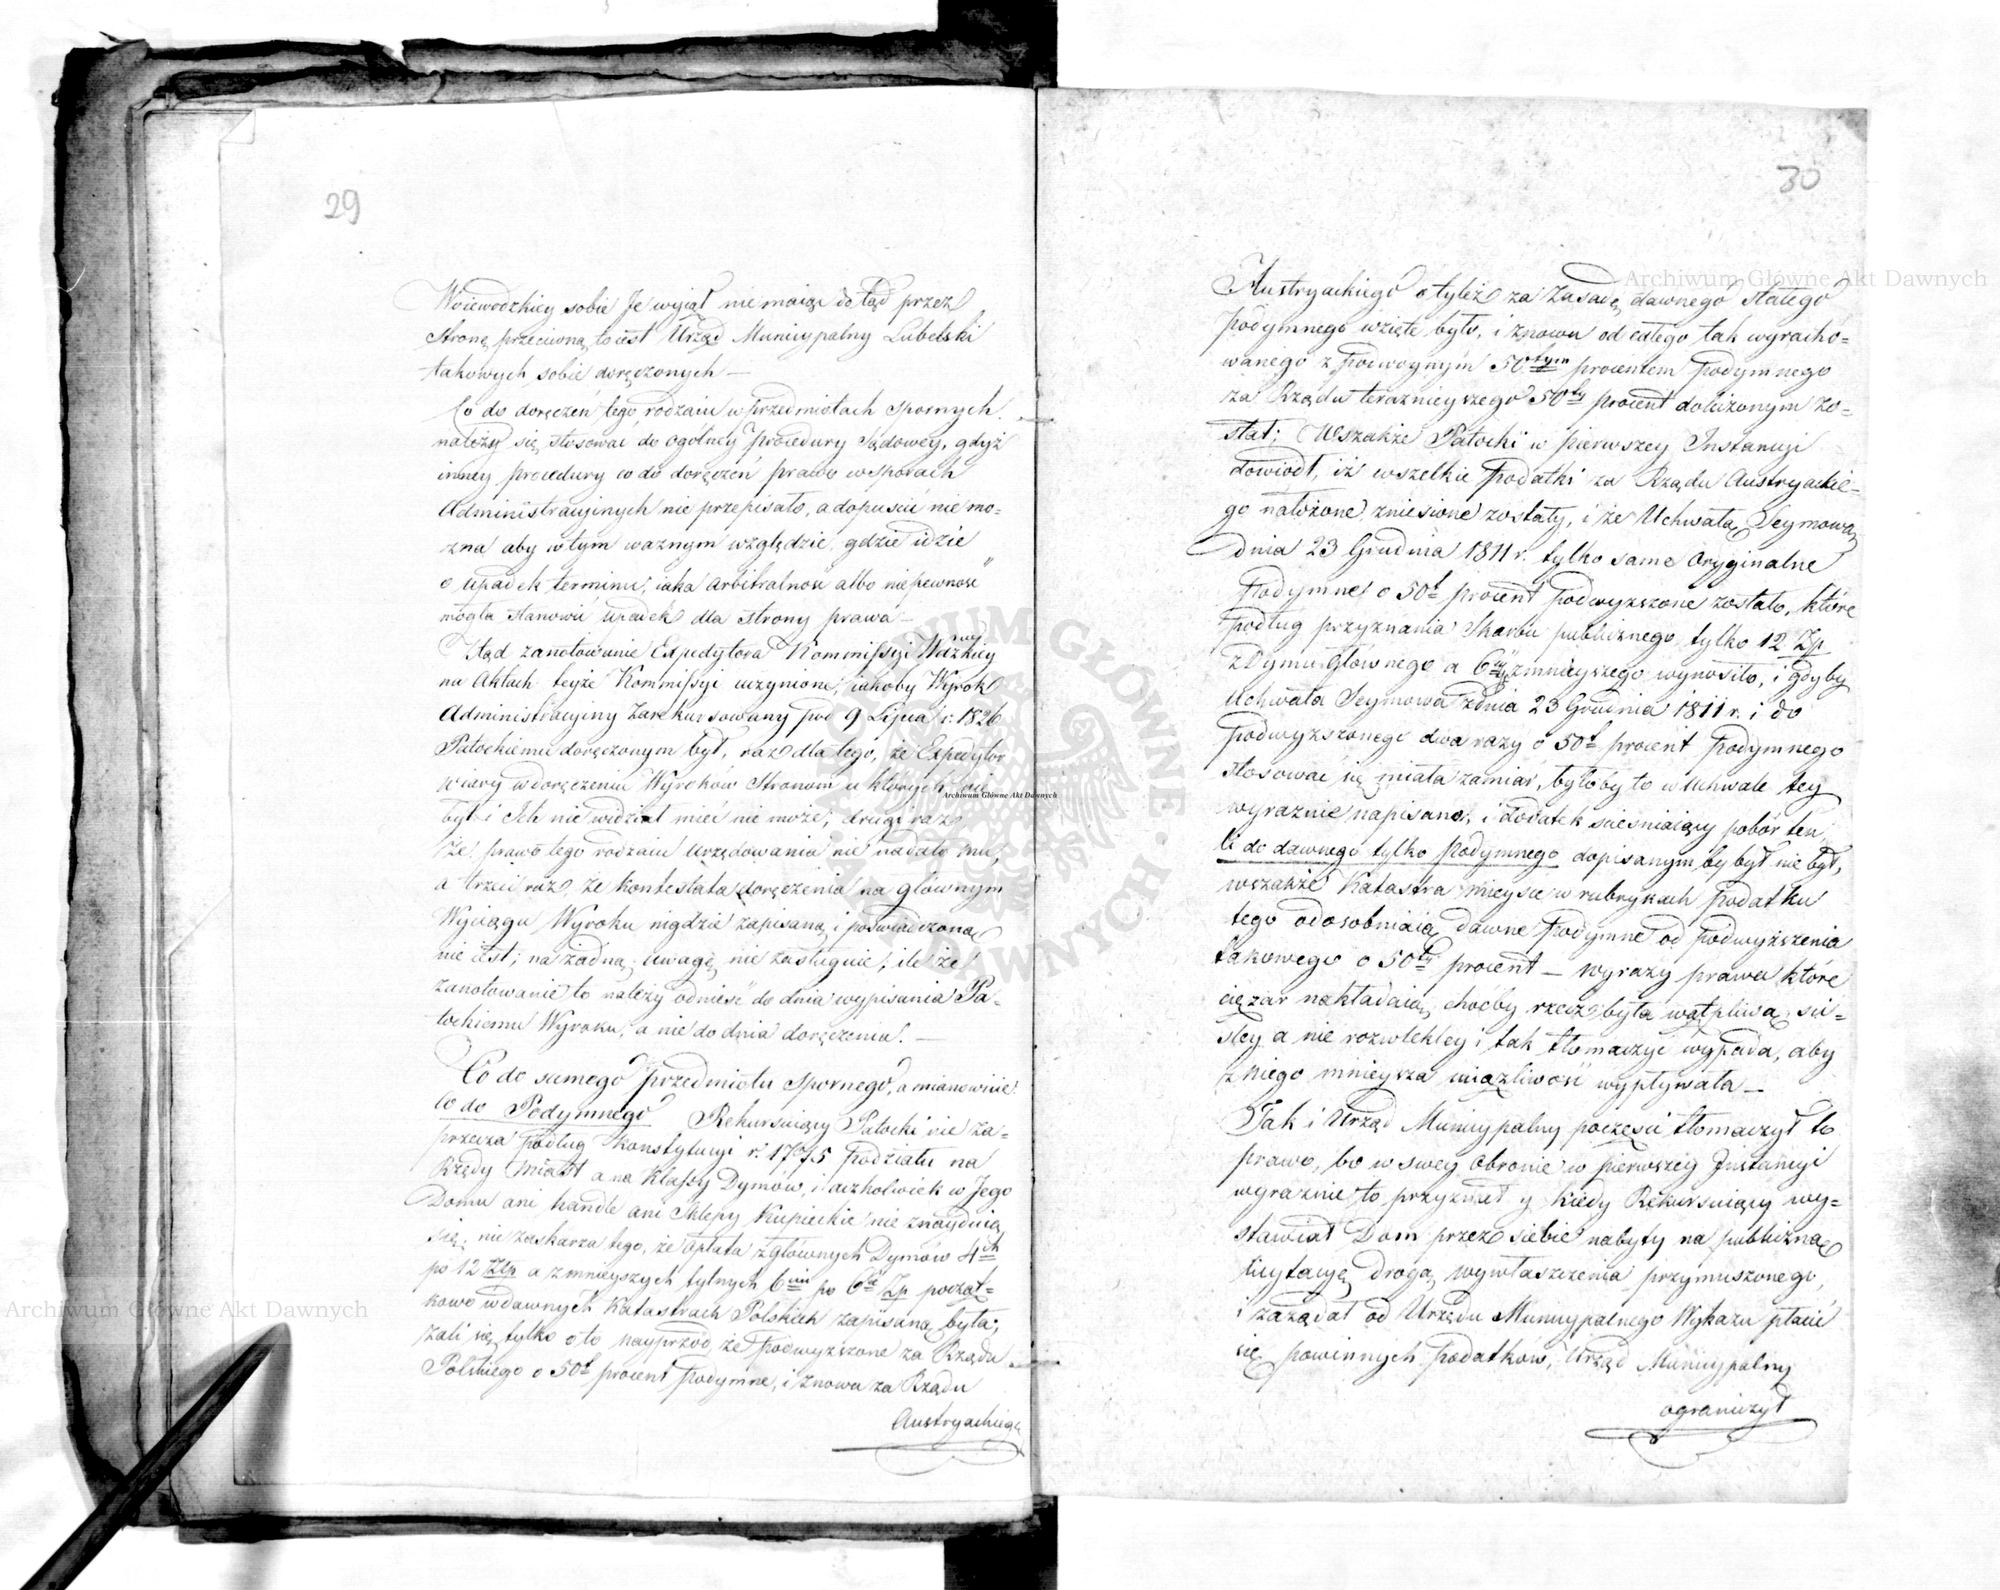 29
Woiewodzkiey sobie Je wyjął nie maiąc dotąd przez
stronę przeciwną to iest Urząd Municypalny Lubelski
takowych sobie doręczonych —
Co do doręczeń tego rodzaiu w przedmiotach spornych
należy się stosować do ogólney procedury Sądowey, gdyż
inney procedury co do doręczeń prawo w sporach
Administracyinych nie przepisało, a dopuścić nie mo=
zna aby w tym waznym względzie, gdzie idzie
o upadek terminu, iaka arbitralność albo niepewność
mogła stanowić upadek dla strony prawa —
Ztąd zanotowanie Expedytora Kommissyi Wdzkiey
na Aktach teyże Kommissyi uczynione, iakoby Wyrok
Administracyiny zarekursowany pod 9 Lipca r. 1826
Patockiemu doręczonym był, raz dla tego, że Expedytor
wiary w doręczeniu Wyroków Stronom u których nie
był i Ich nie widział mieć nie może, drugi raz
że prawo tego rodzaiu Urzędowania nie nadało mu,
a trzeci raz, że kontestata doręczenia na głównym
Wyciągu Wyroku nigdzie zapisaną i poświadczoną
nie iest; na żadną uwagę nie zasługuie, ile że
zanotowanie to należy odnieść do dnia wypisania Pa=
tockiemu Wyroku, a nie do dnia doręczenia. —
Co do samego przedmiotu spornego, a mianowicie
co do Podymnego Rekursuiący Patocki nie za=
przecza podług konstytucyi r. 1775 podziału na
Rzędy Miast a na klassy Dymów, i aczkolwiek w Jego
Domu ani handle ani Sklepy Kupieckie nie znayduią
się, nie zaskarza tego, że opłata z głównych Dymów 4ch
po 12 Złp a z mnieyszych tylnych 6ciu po 6ść Złp począt=
kowo w dawnych Katastrach Polskich zapisaną była;
żali się tylko o to nayprzód że podwyższone za Rządu
Polskiego o 50t procent Podymne, i znowu za Rządu
Austryackiego
30
Austryackiego o tyleż za Zasadę dawnego stałego
podymnego wzięte było, i znowu od całego tak wyracho=
wanego z podwoynym 50tym procentem Podymnego
za Rządu teraznieyszego 50ty procent doliczonym zo=
stał; Wszakże Patocki w pierwszey Instancyi
dowiodł, iż wszelkie Podatki za Rządu Austryackie=
go nałożone zniesione zostały, i że Uchwałą Seymową
dnia 23 Grudnia 1811 r. tylko same oryginalne
Podymne o 50t procent podwyższone zostało, które
podług przyznania Skarbu publicznego tylko 12 Złp
z Dymu Głównego a 6ść z mnieyszego wynosiło, i gdyby
Uchwała Seymowa z dnia 23 Grudnia 1811 r. i do
podwyższonego dwa razy o 50t procent Podymnego
stosować się miała zamiar, byłoby to w Uchwale tey
wyraznie napisano, i dodatek scieśniaiący pobór ten
li do dawnego tylko Podymnego dopisanym by był nie był,
wszakże Katastra mieysce w rubrykach podatku
tego odosobniaią dawne Podymne od podwyższenia
takowego o 50ty procent — wyrazy prawa które
ciężar nakładaią, choćby rzecz była wątpliwą, ści=
śley a nie rozwlekley i tak tłomaczyć wypada, aby
z niego mnieysza uciążliwość wypływała —
Tak i Urząd Municypalny poczęści tłomaczył to
prawo, bo w swey obronie w pierwszey Instancyi
wyraznie to przyznał y kiedy Rekursuiący wy=
stawiał Dom przez siebie nabyty na publiczną
licytacyę drogą wywłaszczenia przymuszonego,
i zażądał od Urzędu Municypalnego Wykazu płacić
się powinnych podatkow, Urząd Municypalny
ograniczył
Archiwum Główne Akt Dawnych
Archiwum Główne Akt Dawnych
Archiwum Główne Akt Dawnych
ARCHIWUM GŁÓWNE AKT DAWNYCH